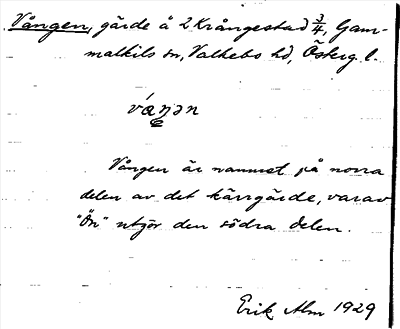 Vången, gärde å 2 Krångestad 3/4, Gam-
malkils sn, Valkebo hd, Österg. l.
Vången är namnet på norra
delen av det kärrgärde, varav
"Ön" utgör den södra delen.
Erik Alm 1929